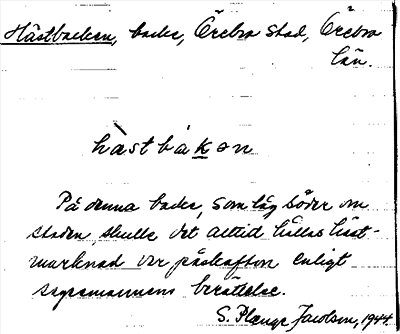 Hästbacken, backe, Örebro stad, Örebro
län.
hàstbàkən
På denna backe, som låg söder om
staden, skulle det alltid hållas häst-
marknad var påskafton enligt
sagesmannens berättelse.
S. Plenge Jacobson, 1944.